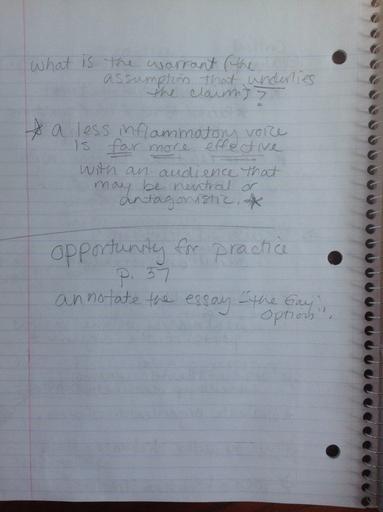 what is the warrant (the
assumption that underlies
the claim)?
☆ a less inflammatory voice
is far more effective
with an audience that
may be neutral or
antagonistic. ☆
opportunity for practice
p. 37
annotate the essay "the Gay
Option".